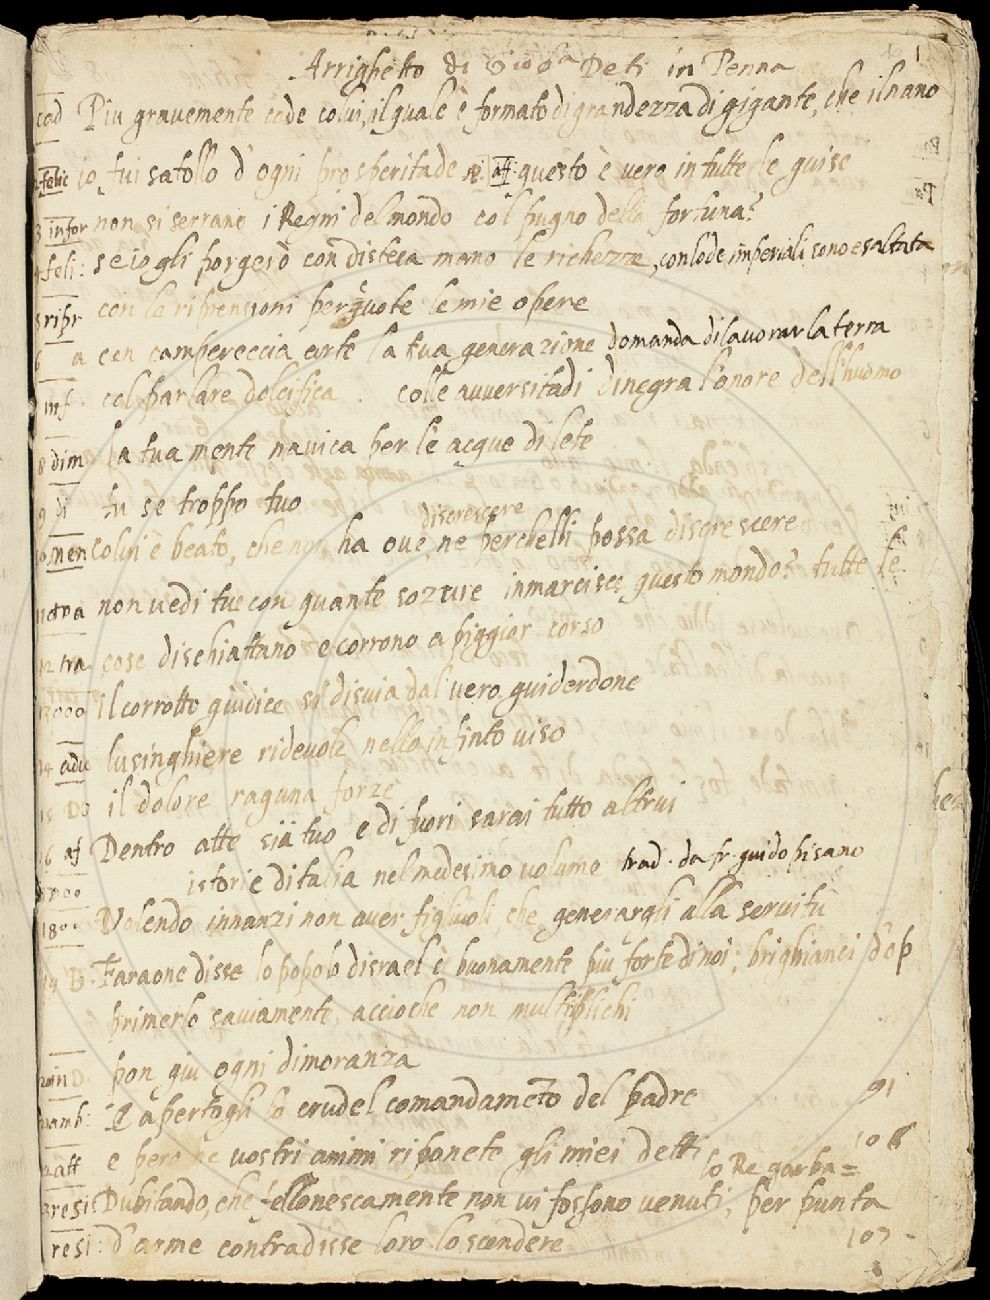 1
Arrighetto di Gio: B.a Deti in Penna
cad Piu gravemente cade colui, il quale è formato di grandezza di gigante, che il nano
felic io fui satollo d'ogni prosperitade att. questo è vero in tutte le guise
3 infor non si serrano i Regni del mondo col pugno della fortuna?
4 feli: se io gli porgerò con distesa mano le richezze, con lode imperiali sono esaltata
5 ripr con le riprensioni perquote le mie opere
6 a con campereccia arte la tua generazione domanda di lavorar la terra
inf. col parlare dolcifica . colle avversitadi dinegra l'onore dell'huomo
8 dim la tua mente navica per le acque di lete
9 di tu se troppo tuo
discrescere
men colui è beato, che non ha ove, ne perchelli possa discrescere
non vedi tu con quante sozure inmarcisce questo mondo? tutte le
12 tra cose dischiattano e corrono a piggior corso
13 000 il corrotto giudice si disvia dal vero guiderdone
14 adu lusinghiere ridevole nella infinto viso
15 Do il dolore raguna forze
16 af Dentro atte sia tuo e di fuori sarai tutto altrui
istorie d'italia nel medesimo volume trad. da fr. guido pisano
18 Volendo innanzi non aver figliuoli, che generargli alla servitù
19 D. Faraone disse lo popolo disrael è buonamente piu forte di noi; brighianci d'op
primerlo saviamente, accioche non multiplichi
in D. pon giu ogni dimoranza
amb: E apertogli lo crudel comandameto del padre 91
att e pero ne vostri animi riponete gli miei detti 108
lo Re garba=
resis Dubitando, che fellonescamente non vi fossono venuti, per punta
resi: d'arme contradisse loro lo scendere 107